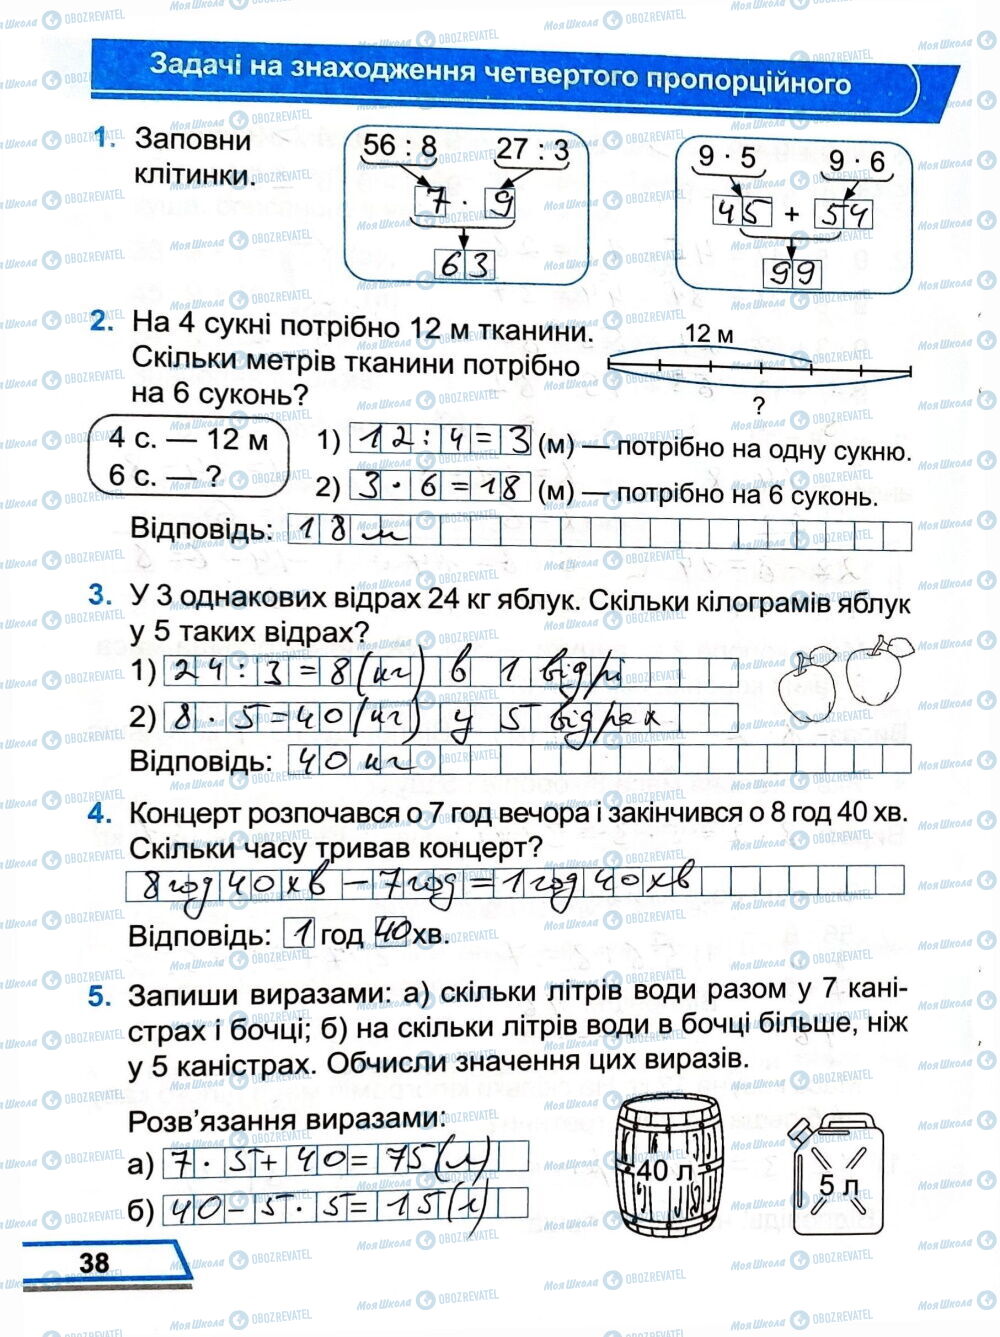 Задачі на знаходження четвертого пропорційного
1. Заповни клітинки.
56 : 8 27 : 3
7 · 9
63
9 · 5 9 · 6
45 + 54
99
2. На 4 сукні потрібно 12 м тканини.
Скільки метрів тканини потрібно
на 6 суконь?
12 м
?
4 с. — 12 м
6 с. — ?
1) 12 : 4 = 3 (м) — потрібно на одну сукню.
2) 3 · 6 = 18 (м) — потрібно на 6 суконь.
Відповідь: 18 м
3. У 3 однакових відрах 24 кг яблук. Скільки кілограмів яблук
у 5 таких відрах?
1) 24 : 3 = 8 (кг) в 1 відрі
2) 8 · 5 = 40 (кг) у 5 відрах
Відповідь: 40 кг
4. Концерт розпочався о 7 год вечора і закінчився о 8 год 40 хв.
Скільки часу тривав концерт?
8 год 40 хв – 7 год = 1 год 40 хв
Відповідь: 1 год 40 хв.
5. Запиши виразами: а) скільки літрів води разом у 7 кані-
страх і бочці; б) на скільки літрів води в бочці більше, ніж
у 5 каністрах. Обчисли значення цих виразів.
Розв’язання виразами:
а) 7 · 5 + 40 = 75 (л)
б) 40 – 5 · 5 = 15 (л)
40 л
5 л
38
МояШкола OBOZREVATEL